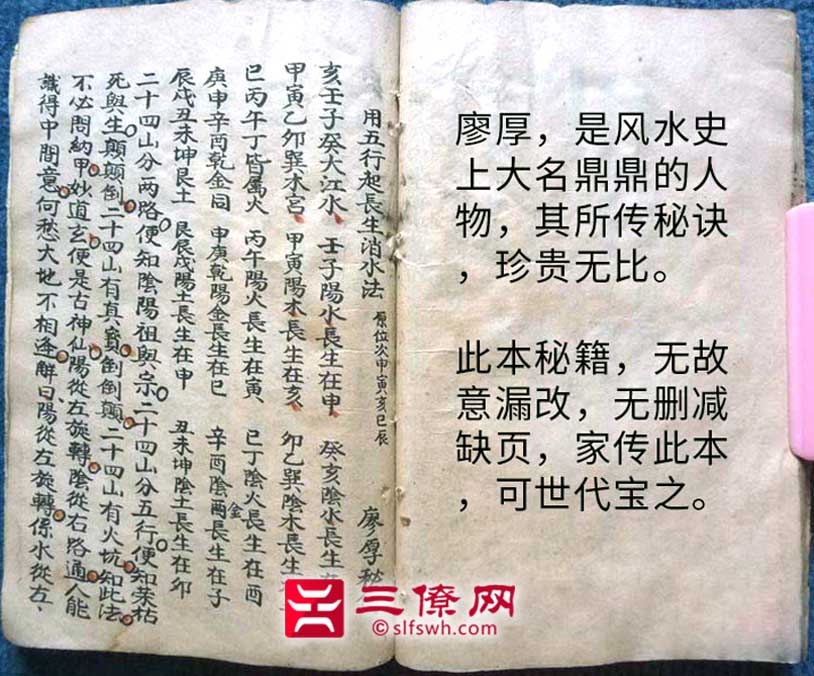 用五行起長生消水法 原位次申寅亥巳辰 廖厚秘
亥壬子癸大江水、壬子陽水長生在申、癸亥陰水長生在
甲寅乙卯巽木宮、甲寅陽木長生在亥、卯乙巽陰木長生
巳丙午丁皆属火 丙午陽火長生在寅、巳丁陰火長生在酉
庚申辛酉乾金同 申庚乾陽金長生在巳 辛酉陰金長生在子
辰戌丑未坤艮土 艮辰戌陽土長生在申 丑未坤陰土長生在卯
二十四山分兩路便知陰陽祖與宗二十四山分五行便知荣枯
死與生顛顛倒二十四山有真寶倒倒顛二十四山有火坑知此法
不必問納甲妙道玄便是古神仙陽從左旋轉陰從右路通人能
識得中間意何愁大地不相逢解曰陽從左旋轉係水從左、
廖厚，是风水史
上大名鼎鼎的人
物，其所传秘诀
，珍贵无比。
此本秘籍，无故
意漏改，无删减
缺页，家传此本
，可世代宝之。
三僚网
© slfswh.com